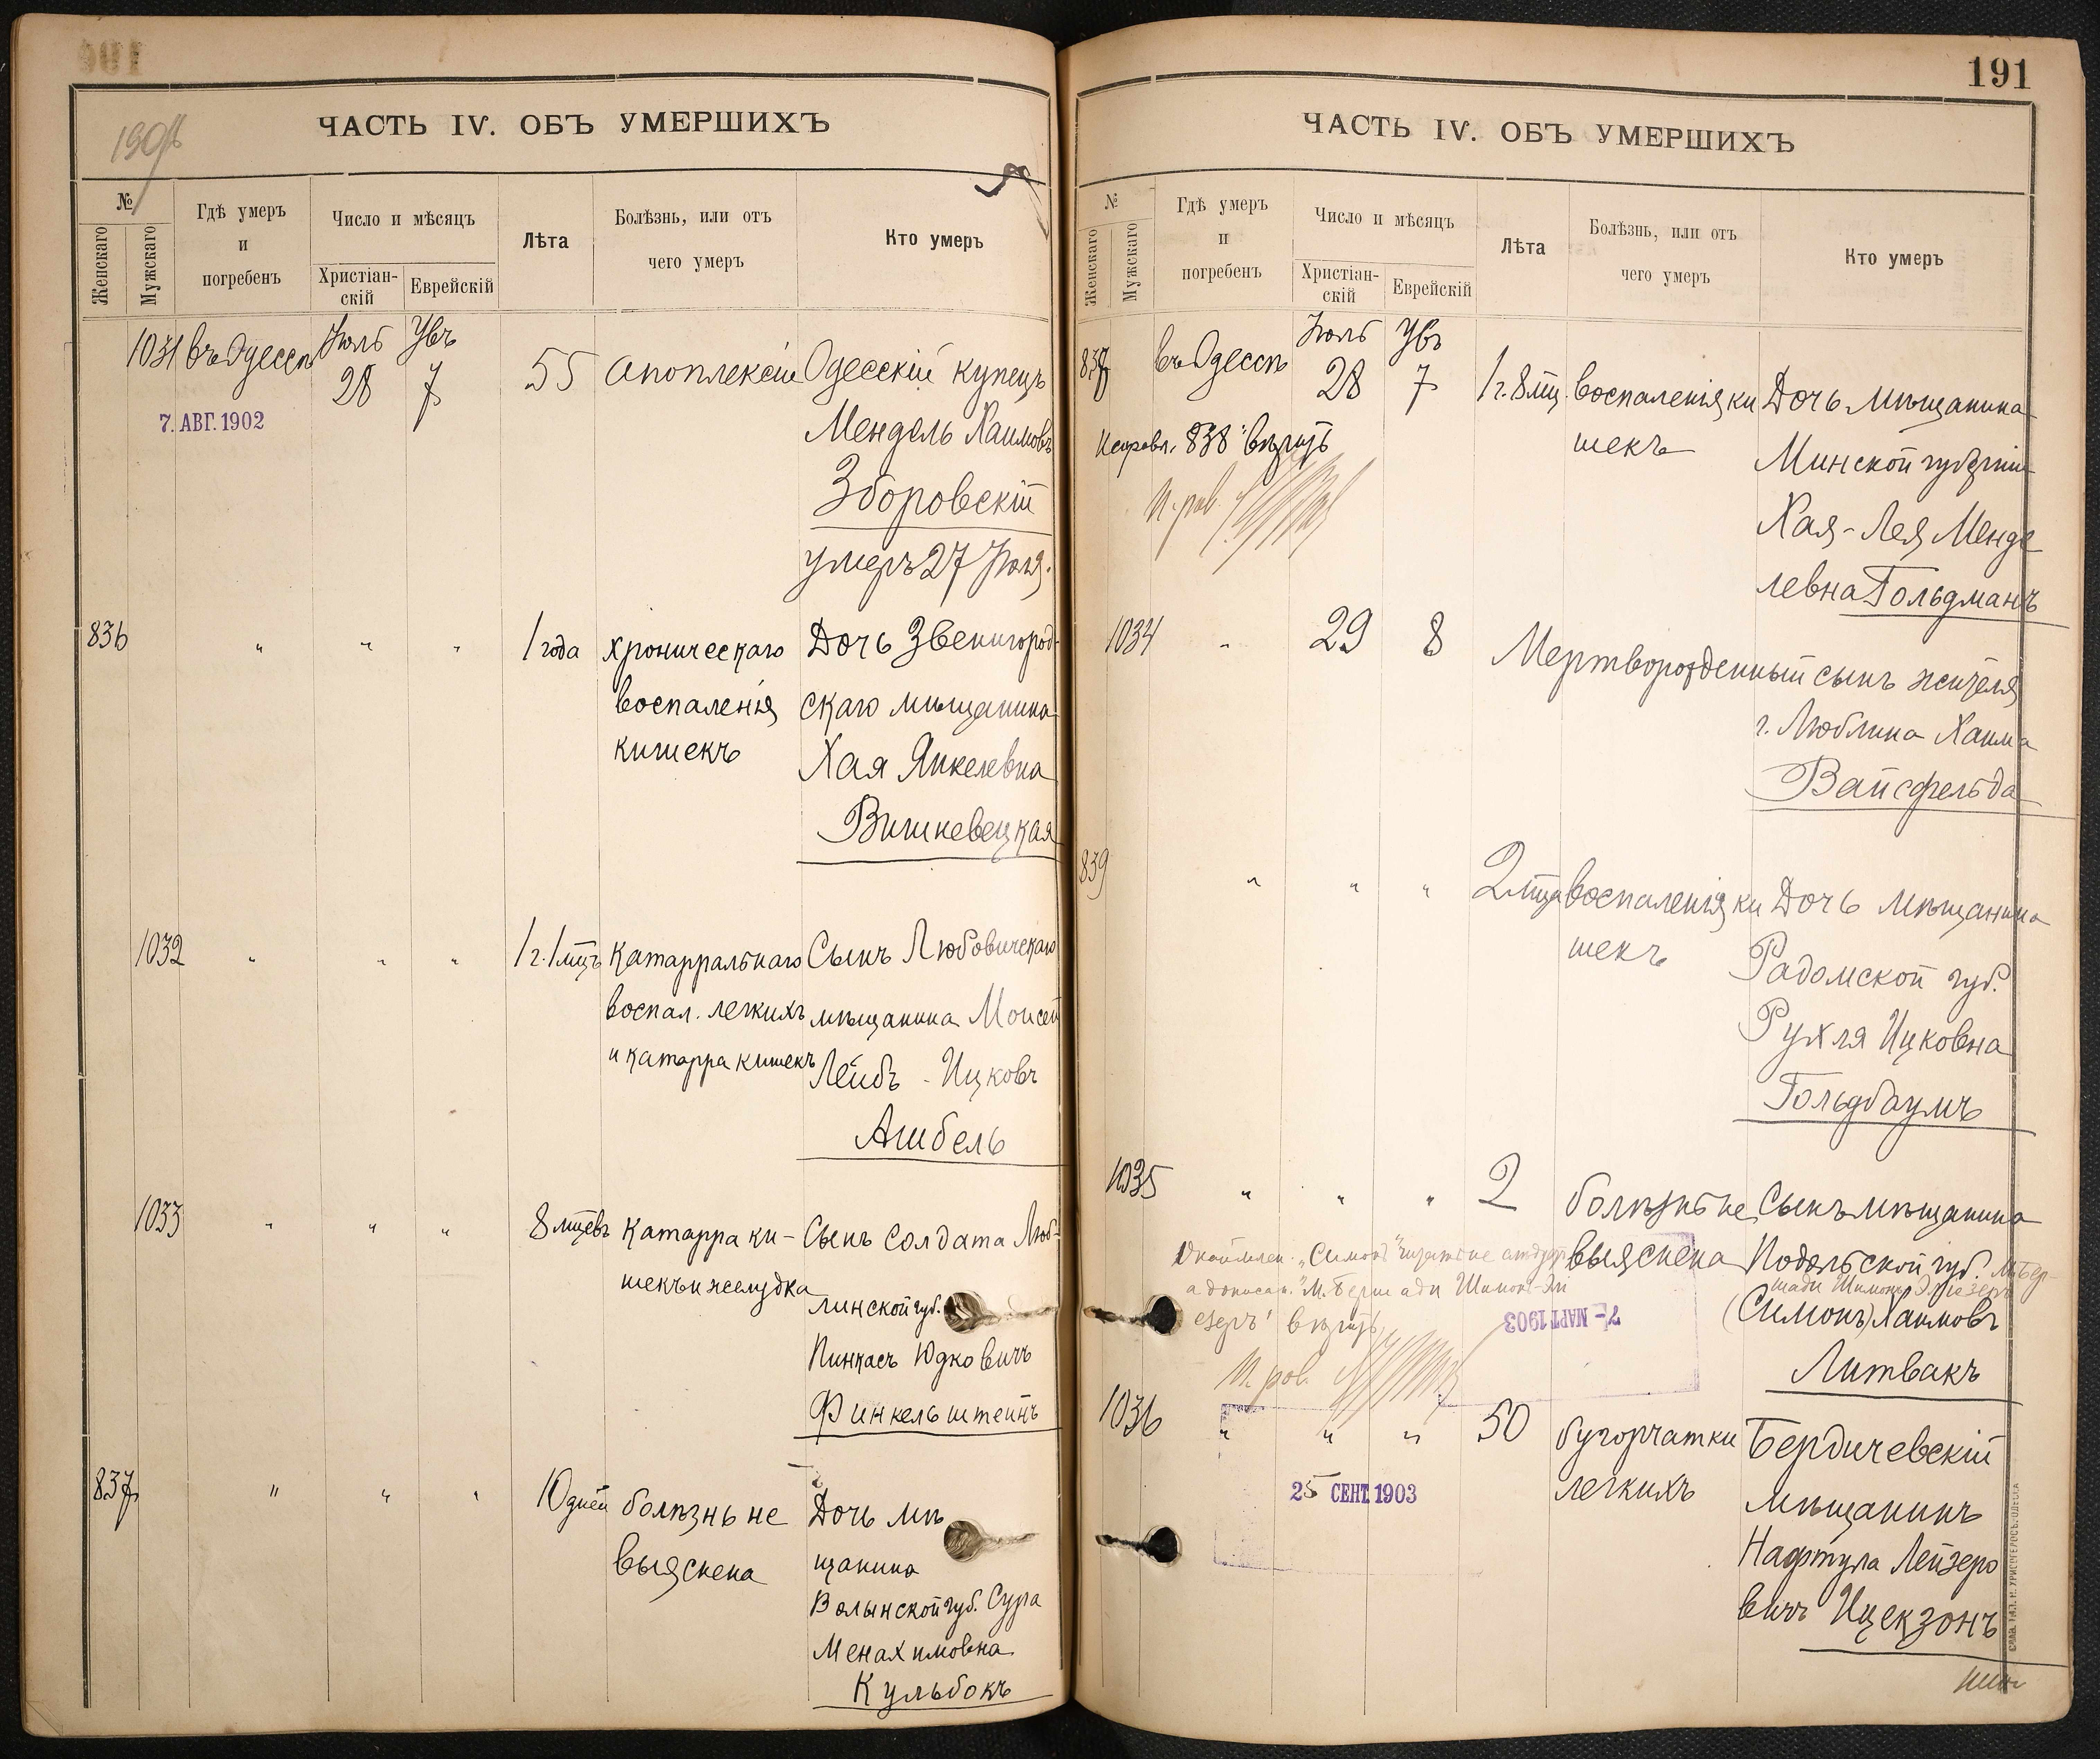 ЧАСТЬ IV. ОБЪ УМЕРШИХЪ
№
Женскаго
Мужскаго
Гдѣ умеръ
и
погребенъ
Число и мѣсяцъ
Христіан-
скій
Еврейскій
Лѣта
Болѣзнь, или отъ
чего умеръ
Кто умеръ
1031 въ Одессѣ Іюль 28 Увъ 7 55 апоплексіи Одесскій купецъ
7. АВГ. 1902
Мендель Хаимовъ
Зборовскій
умеръ 27 Іюля.
836 " " " 1 года хроническаго Дочь Звенигород-
воспаленія скаго мѣщанина
кишекъ Хая Янкелевна
Вишневецкая
1032 " " " 1 г. 1 мцъ катарральнаго Сынъ Любовичскаго
воспал. легкихъ мѣщанина Моисей
и катарра кишекъ Лейбъ - Ицковъ
Ашбель
1033 " " " 8 мцевъ катарра ки- Сынъ солдата Люб-
шекъ и желудка линской губ.
Пинкасъ Юдковичъ
Финкельштейнъ
837 " " " 10 дней болѣзнь не Дочь мѣ
выяснена щанина
Волынской губ. Сура
Менахимовна
Кульбокъ
191
ЧАСТЬ IV. ОБЪ УМЕРШИХЪ
№
Женскаго
Мужскаго
Гдѣ умеръ
и
погребенъ
Число и мѣсяцъ
Христіан-
скій
Еврейскій
Лѣта
Болѣзнь, или отъ
чего умеръ
Кто умеръ
837 въ Одессѣ Іюль 28 Увъ 7 1 г. 8 мц. воспаленія ки Дочь мѣщанина
Исправл. "838" вѣрить шекъ Минской губерніи
Хая-Лея Менде
левна Гольдманъ
1034 " 29 8 Мертворожденный сынъ жителя
г. Люблина Хаима
Вайсфельда
839 " " " 2 мца воспаленія ки Дочь мѣщанина
шекъ Радомской губ.
Рухля Ицковна
Гольдбаумъ
1035 " " " 2 болѣзнь не Сынъ мѣщанина
выяснена Подольской губ. М. Бер-
шади Шимонъ-Эліезеръ
(Симонъ) Хаимовъ
Литвакъ
"Симонъ" читать не
а дописан. "М. Бершади Шимонъ-Элі
езеръ" вѣрить
7- МАРТ 1903
1036 " " " 50 бугорчатки Бердичевскій
легкихъ мѣщанинъ
25 СЕНТ. 1903
Нафтула Лейзеро
вичъ Ицекзонъ